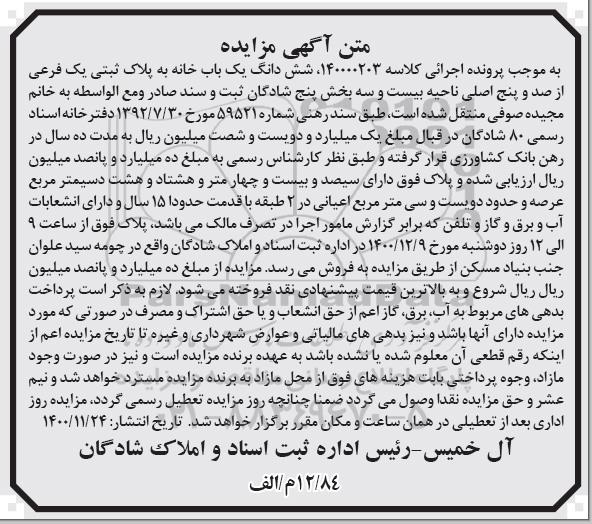 متن آگهی مزایده
به موجب پرونده اجرائی کلاسه ۱۴۰۰۰۰۲۰۳، شش دانگ یک باب خانه به پلاک ثبتی یک فرعی
از صد و پنج اصلی ناحیه بیست و سه بخش پنج شادگان ثبت و سند صادر ومع الواسطه به خانم
مجیده صوفی منتقل شده است، طبق سند رهنی شماره ۵۹۵۲۱ مورخ ۱۳۹۲/۷/۳۰ دفترخانه اسناد
رسمی ۸۰ شادگان در قبال مبلغ یک میلیارد و دویست و شصت میلیون ریال به مدت ده سال در
رهن بانک کشاورزی قرار گرفته و طبق نظر کارشناس رسمی به مبلغ ده میلیارد و پانصد میلیون
ریال ارزیابی شده و پلاک فوق دارای سیصد و بیست و چهار متر و هشتاد و هشت دسیمتر مربع
عرصه و حدود دویست و سی متر مربع اعیانی در ۲ طبقه با قدمت حدودا ۱۵ سال و دارای انشعابات
آب و برق و گاز و تلفن که برابر گزارش مامور اجرا در تصرف مالک می باشد، پلاک فوق از ساعت ۹
الی ۱۲ روز دوشنبه مورخ ۱۴۰۰/۱۲/۹ در اداره ثبت اسناد و املاک شادگان واقع در چومه سید علوان
جنب بنیاد مسکن از طریق مزایده به فروش می رسد. مزایده از مبلغ ده میلیارد و پانصد میلیون
ریال ریال شروع و به بالاترین قیمت پیشنهادی نقد فروخته می شود. لازم به ذکر است پرداخت
بدهی های مربوط به آب، برق، گاز اعم از حق انشعاب و یا حق اشتراک و مصرف در صورتی که مورد
مزایده دارای آنها باشد و نیز بدهی های مالیاتی و عوارض شهرداری و غیره تا تاریخ مزایده اعم از
اینکه رقم قطعی آن معلوم شده یا نشده باشد به عهده برنده مزایده است و نیز در صورت وجود
مازاد، وجوه پرداختی بابت هزینه های فوق از محل مازاد به برنده مزایده مسترد خواهد شد و نیم
عشر و حق مزایده نقدا وصول می گردد ضمنا چنانچه روز مزایده تعطیل رسمی گردد، مزایده روز
اداری بعد از تعطیلی در همان ساعت و مکان مقرر برگزار خواهد شد. تاریخ انتشار: ۱۴۰۰/۱۱/۲۴
آل خمیس-رئیس اداره ثبت اسناد و املاک شادگان
۱۲/۸۴م/الف